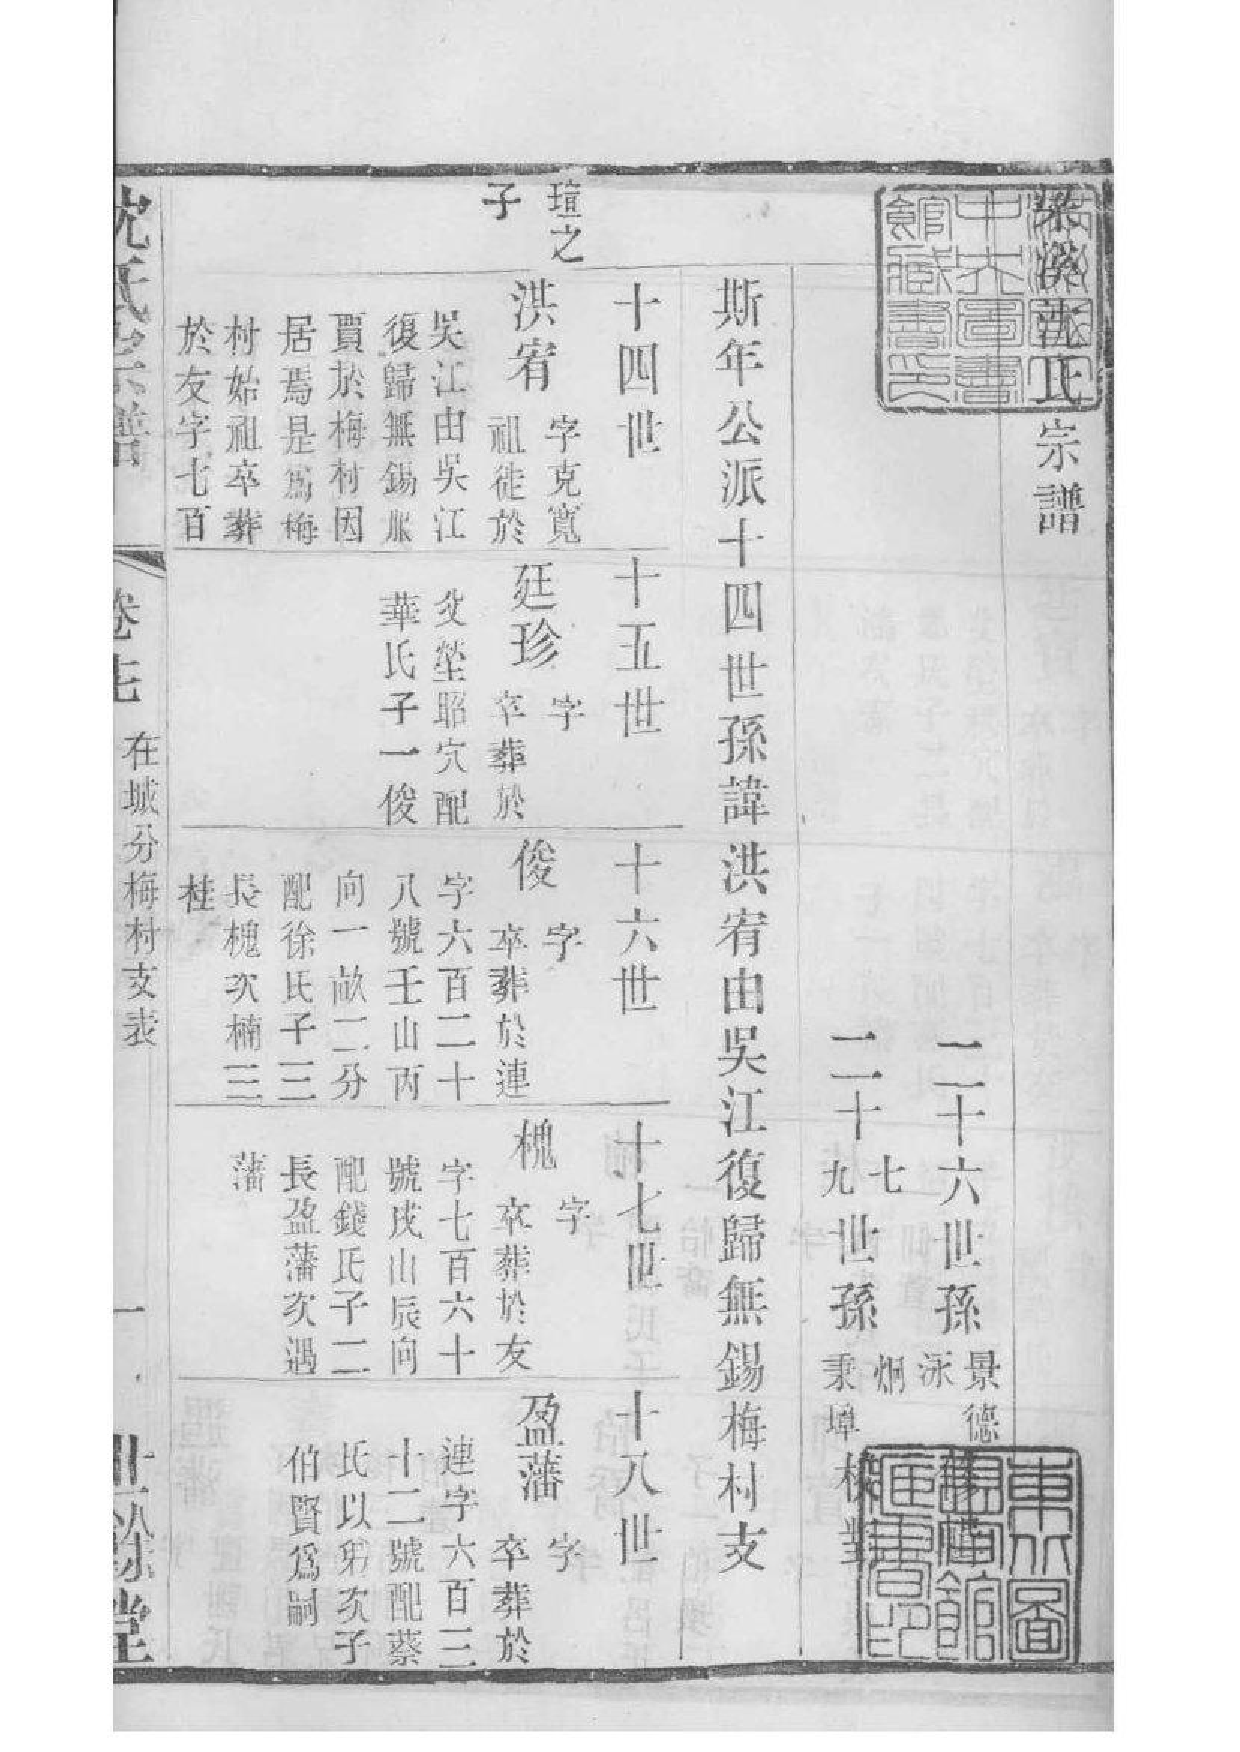 梁溪沈氏宗譜
二十六世孫景德泳
二十七九世孫炯秉墇
斯年公派十四世孫諱洪宥由吳江復歸無錫梅村支
十四世
十五世
十六世
十七世
十八世
瑄之子
洪宥
字克寬
祖徙於
吳江由吳江
復歸無錫服
賈於梅村因
居焉是爲梅
村始祖卒葬
於友字七百
廷珍
字
卒葬於
父塋昭穴配
華氏子一俊
俊
字
卒葬於連
字六百二十
八號壬山丙
向一畝二分
配徐氏子三
長槐次楠三
桂
槐
字
卒葬於友
字七百六十
號戌山辰向
配錢氏子二
長盈藩次遇
藩
盈藩
字
卒葬於
連字六百三
十二號配蔡
氏以弟次子
伯賢爲嗣
沈氏宗譜
卷七
在城分梅村支表
一